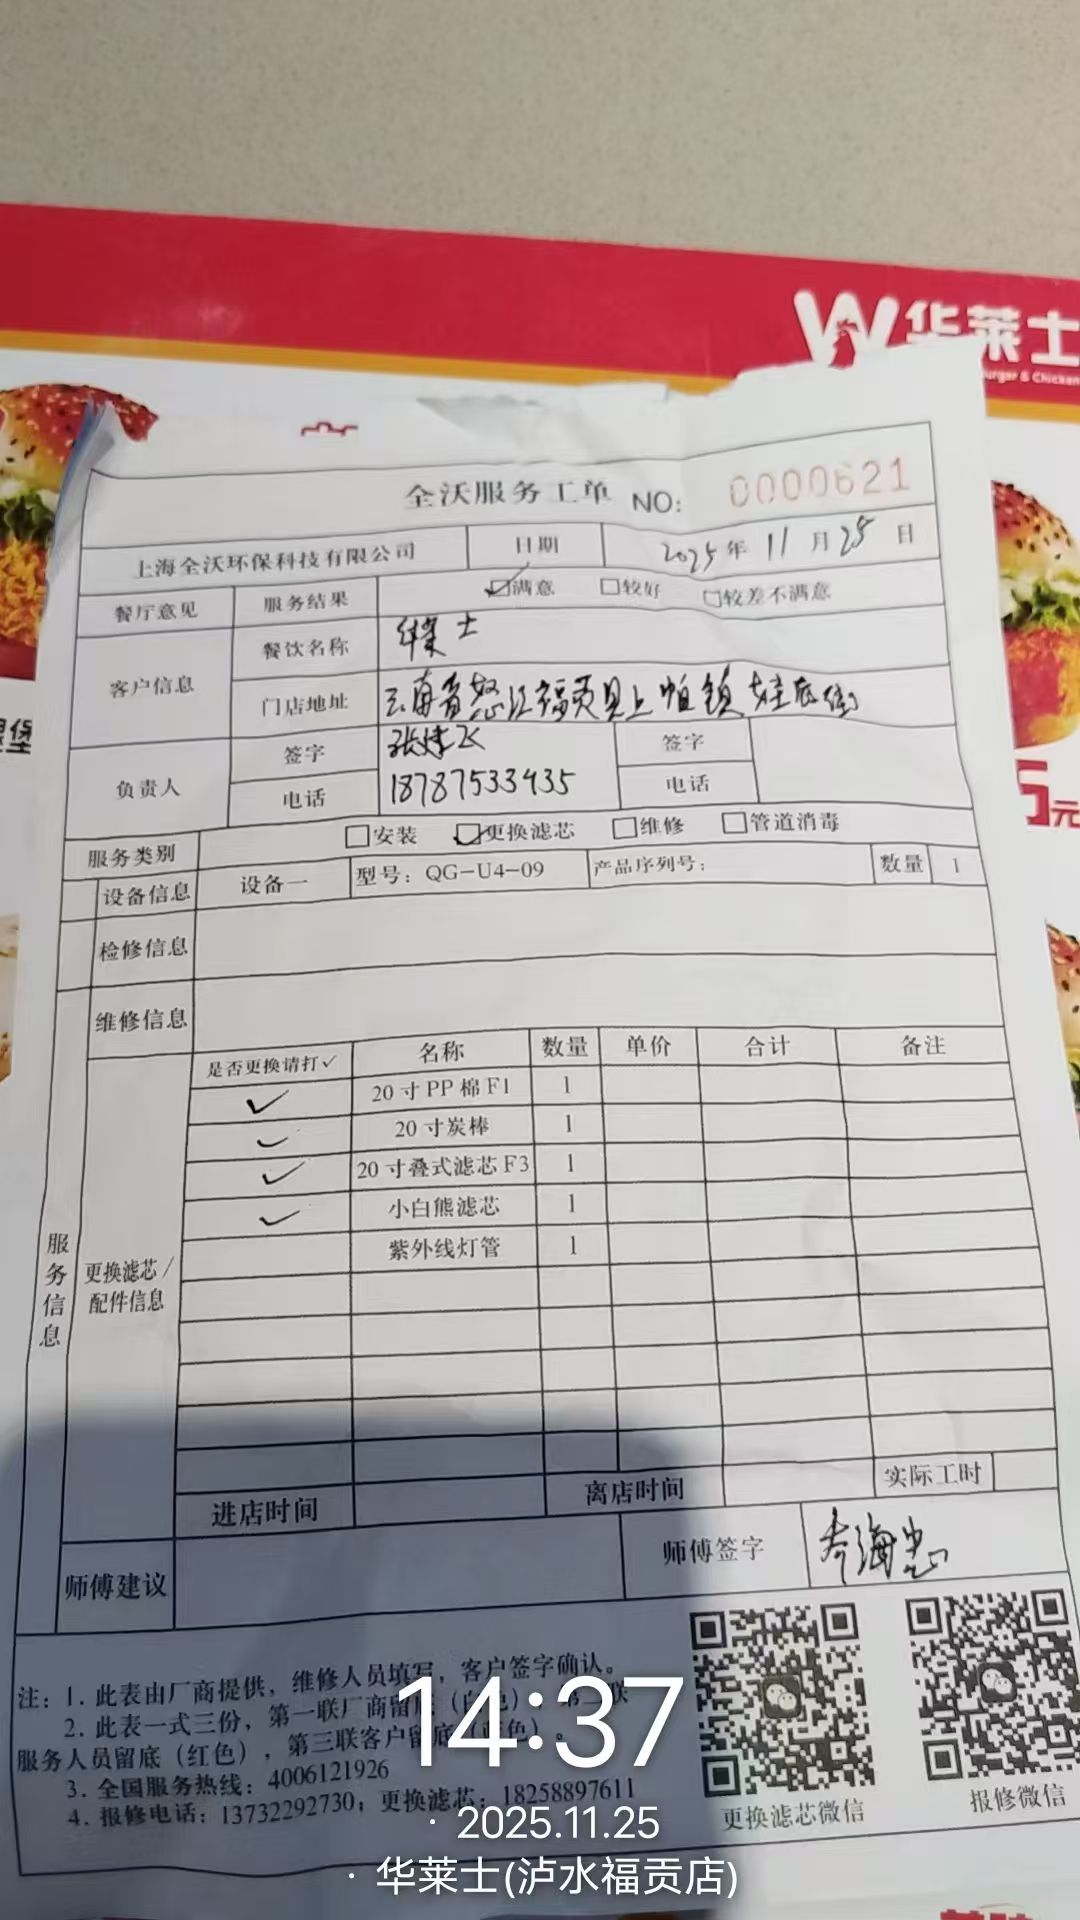 华莱士
Burger & Chicken
堡
5元
全沃服务工单 NO: 0000621
上海全沃环保科技有限公司 日期 2025年11月25日
餐厅意见 服务结果 ☑满意 □较好 □较差不满意
客户信息 餐饮名称 华莱士
门店地址 云南省怒江福贡县上帕镇娃底街
负责人 签字 张建飞 签字
电话 18787533435 电话
服务类别 □安装 ☑更换滤芯 □维修 □管道消毒
设备信息 设备一 型号：QG-U4-09 产品序列号： 数量 1
检修信息
维修信息
服务信息
更换滤芯/配件信息
是否更换请打✓ 名称 数量 单价 合计 备注
✓ 20寸PP棉F1 1
✓ 20寸炭棒 1
✓ 20寸叠式滤芯F3 1
✓ 小白熊滤芯 1
紫外线灯管 1
进店时间 离店时间 实际工时
师傅建议 师傅签字 海忠
注：1. 此表由厂商提供，维修人员填写，客户签字确认。
2. 此表一式三份，第一联厂商留底（白色），第二联
服务人员留底（红色），第三联客户留底（蓝色）。
3. 全国服务热线：4006121926
4. 报修电话：13732292730；更换滤芯：18258897611
更换滤芯微信 报修微信
14:37
· 2025.11.25
· 华莱士(泸水福贡店)